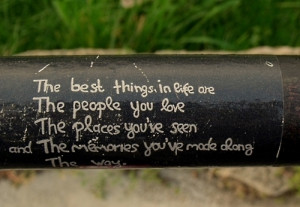 The best things in life are
The people you love
The places you've seen
and The memories you've made along
The way.